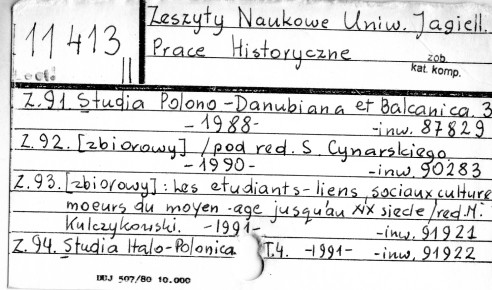 Zeszyty Naukowe Uniw. Jagiell.
11413
Prace Historyczne
zob.
kat. komp.
Lect.
II
Z.91. Studia Polono-Danubiana et Balcanica. 3
-1988- -inw. 87829
Z.92. [zbiorowy] /pod red. S. Cynarskiego.
-1990- -inw. 90283
Z.93. [zbiorowy] : Les etudiants-liens sociaux culture
moeurs du moyen-age jusqu'au XIX siecle/red. M.
Kulczykowski. -1991- -inw. 91921
Z.94. Studia Italo-Polonica T.4. -1991- -inw. 91922
DUJ 507/80 10.000